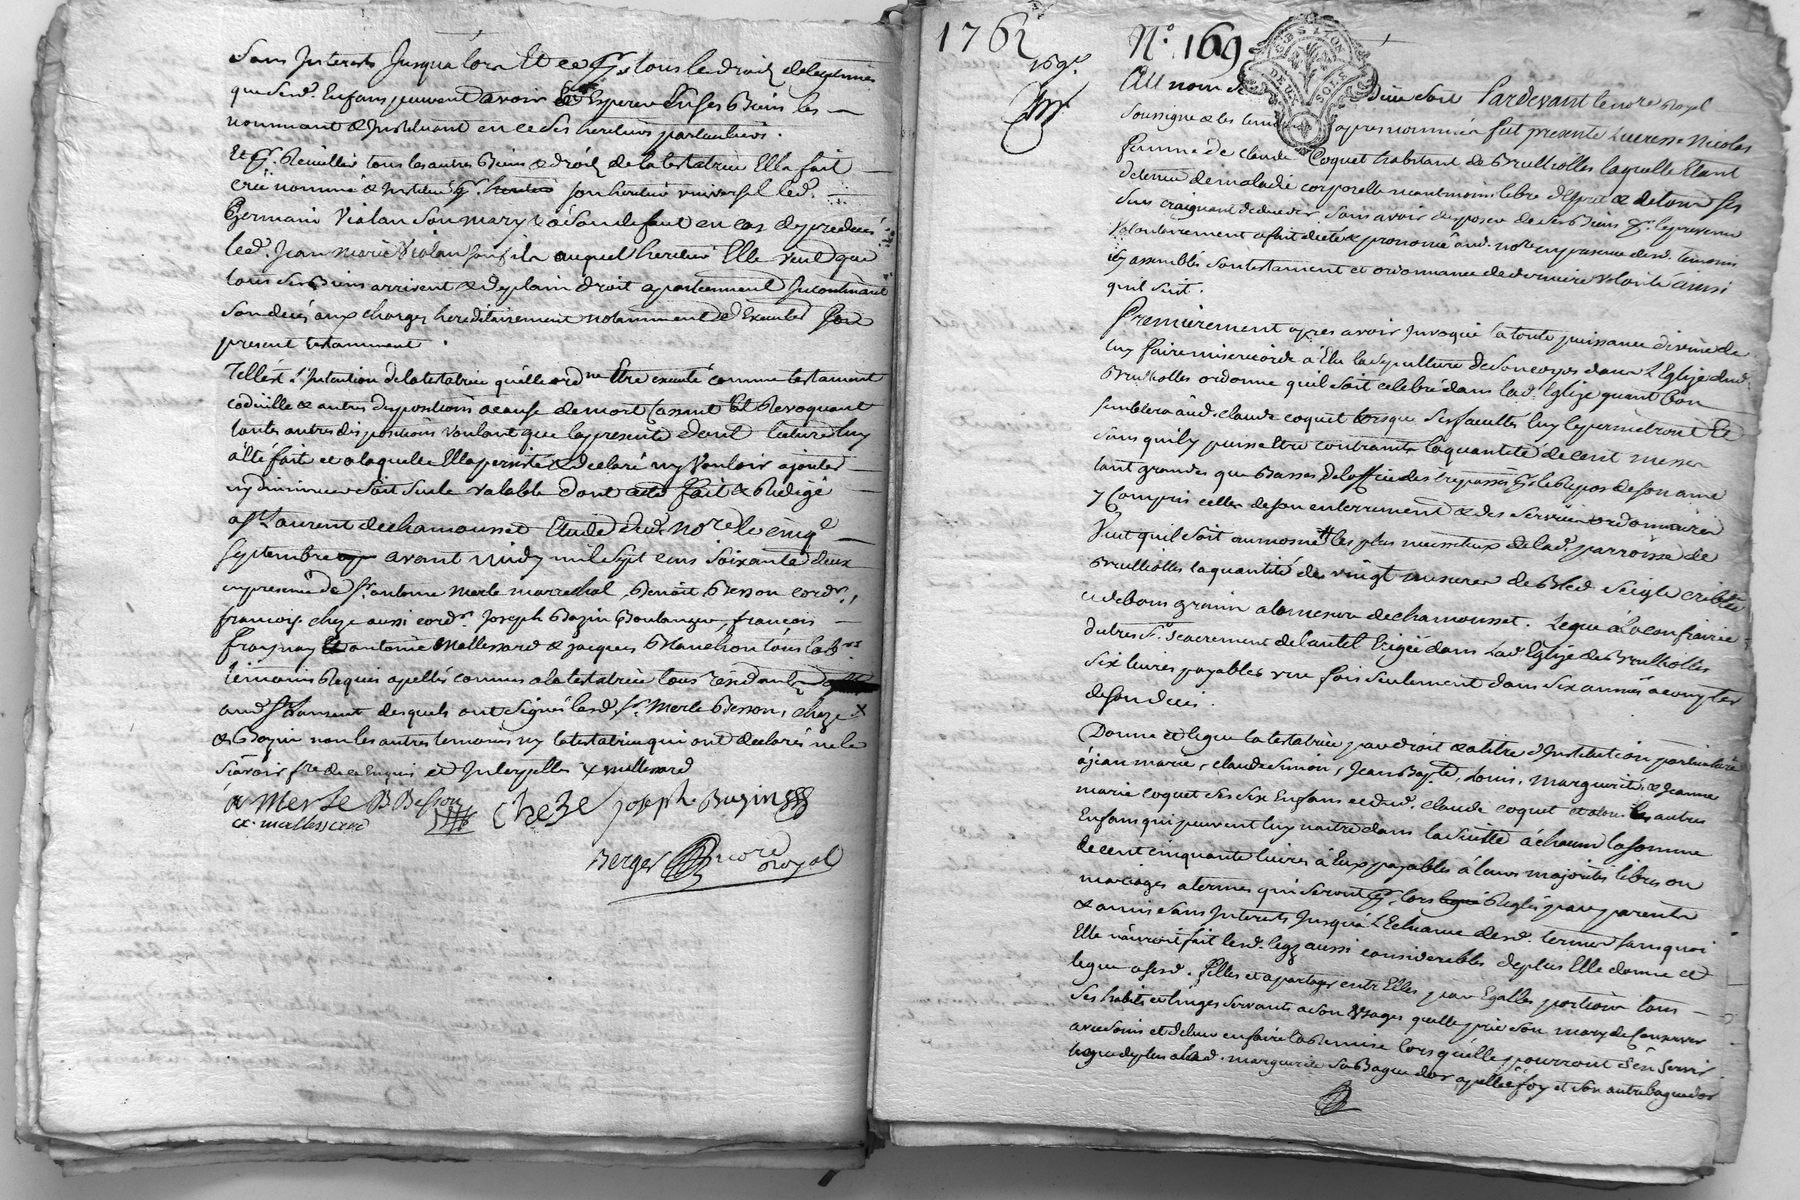 Sans Interests Jusqu'a lors Et ce p.r tous les droits de legitime
que sesd. Enfans peuvent avoir & Esperer En ses Biens les
nommant & Instituant en ce ses heritiers particuliers.
Et p.r Recueillir tous les autres Biens & droits de la testatrice Elle fait
crée nomme & Institue p.r son heritier universel led.
Germain Violan son mary & a son defaut en cas de predeces
led. Jean Marie Violan son fils auquel heritier Elle veut que
tous ses Biens arrivent & de plain droit apartiennent Incontinant
son decès aux charges hereditairement notamment d'Executer son
present testament.
Telle est L'Intention de la testatrice qu'elle ord.ne Etre executé comme testament
codicille & autres dispositions a cause de mort Cassant Et Revoquant
toutes autres dispositions voulant que la presente dont lecture luy
a été faite et a laquelle Elle persiste & declaré ny Vouloir ajouter
ny diminuer soit seule valable dont acte fait & Redigé
a S.t Laurent de chamousset Etude dud. No.re le cinq
septembre avant midy mil sept cens soixante deux
en presence de S.r antoine Merle marechal, Benoit Besson cord.r,
françois cheze aussi cord.r Joseph Bazin Boulanger, françois
Et antoine Mallessard & jacques Blanchon tous lab.rs
temoins Requis apellés connus a la testatrice tous residants
aud. S.t Laurent desquels ont signé lesd. S.rs Merle Besson, cheze
& Bazin non les autres temoins ny la testatrice qui ont declarés ne le
sçavoir f.re de ce Enquis et Interpellés & mallessard
a Merle B Besson cheze joseph Bazin
a. mallessard
Berger no.re royal
1762 N.o 169
169.e
Au nom de Dieu soit Par devant le no.re royal
soussigné & les temoins apres nommés fut presente Lucresse Nicolas
femme de claude Coquet habitant de Brullioles laquelle Etant
detenue de maladie corporelle neantmoins libre d'Esprit & de tous ses
sens craignant de deceder sans avoir disposé de ses Biens p.r le prevenir
volontairement a fait dicté & prononcé aud. no.re en presence desd. temoins
icy assemblés son testament et ordonnance de derniere volonté ainsi
qu'il suit.
Premierement apres avoir Invoqué la toute puissance divine de
luy faire misericorde a Elu la sepulture de son corps dans L'Eglise dud.
Brullioles ordonne qu'il soit celebré dans lad. Eglise quant Bon
semblera aud. claude coquet lorsque ses facultes luy le permettront Et
sans qu'il y puisse Etre contraint la quantité de cent messes
tant grandes que Basses de l'office des trepasses p.r le Repos de son ame
y Compris celles de son enterrement & des services ordonnaires
Veut qu'il soit aumosné les plus necessiteux de lad. parroisse de
Brullioles la quantité de vingt mesures de Bled seigle criblée
et de bons grains a la mesure de chamousset. Legue a la confrairie
du tres S.t sacrement de l'autel Erigée dans lad. Eglise de Brullioles
six livres payables une fois seulement dans six années a compter
de son decès.
Donne et legue la testatrice par droit & a titre d'Institution particuliere
a jean marie, claude simon, Jean Bap.te, Louis, marguerite, & Jeanne
marie coquet ses six Enfans et dud. claude coquet et a tous les autres
Enfans qui peuvent luy naitre dans la suitte a chacun la somme
de cent cinquante livres a Eux payables a leurs majorités libres ou
mariages a termes qui seront p.r lors Reglés par parents
& amis sans Interests Jusqu'a L'Echeance desd. termes sans quoi
Elle n'auroit fait lesd. legs aussi considerables de plus Elle donne et
legue a sesd. filles et a partager entr'Elles par Egalles portions tous
ses habits et linges servants a son Usages qu'elle prie son mary de Conserver
avec soins et de leur en faire la Remise lorsqu'elle pourront s'en servir
legue de plus a lad. marguerite sa Bague d'or apellée foy et son autre bague d'or